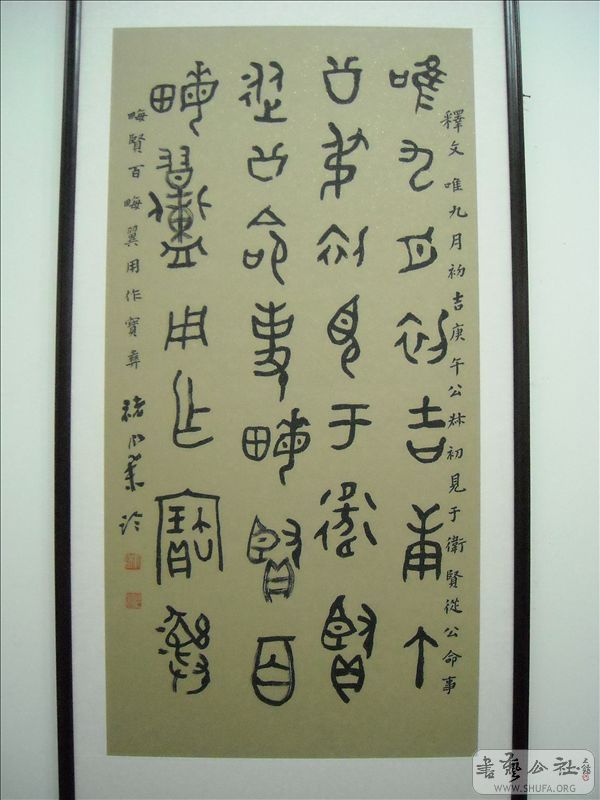 釋文唯九月初吉庚午公叔初見于衛賢從公命事
唯九月初吉庚午
公叔初見于衛賢
從公命事晦賢百
晦用作寶彝
晦賢百晦翼用作寶彝
書藝公社
WWW.SHUFA.ORG